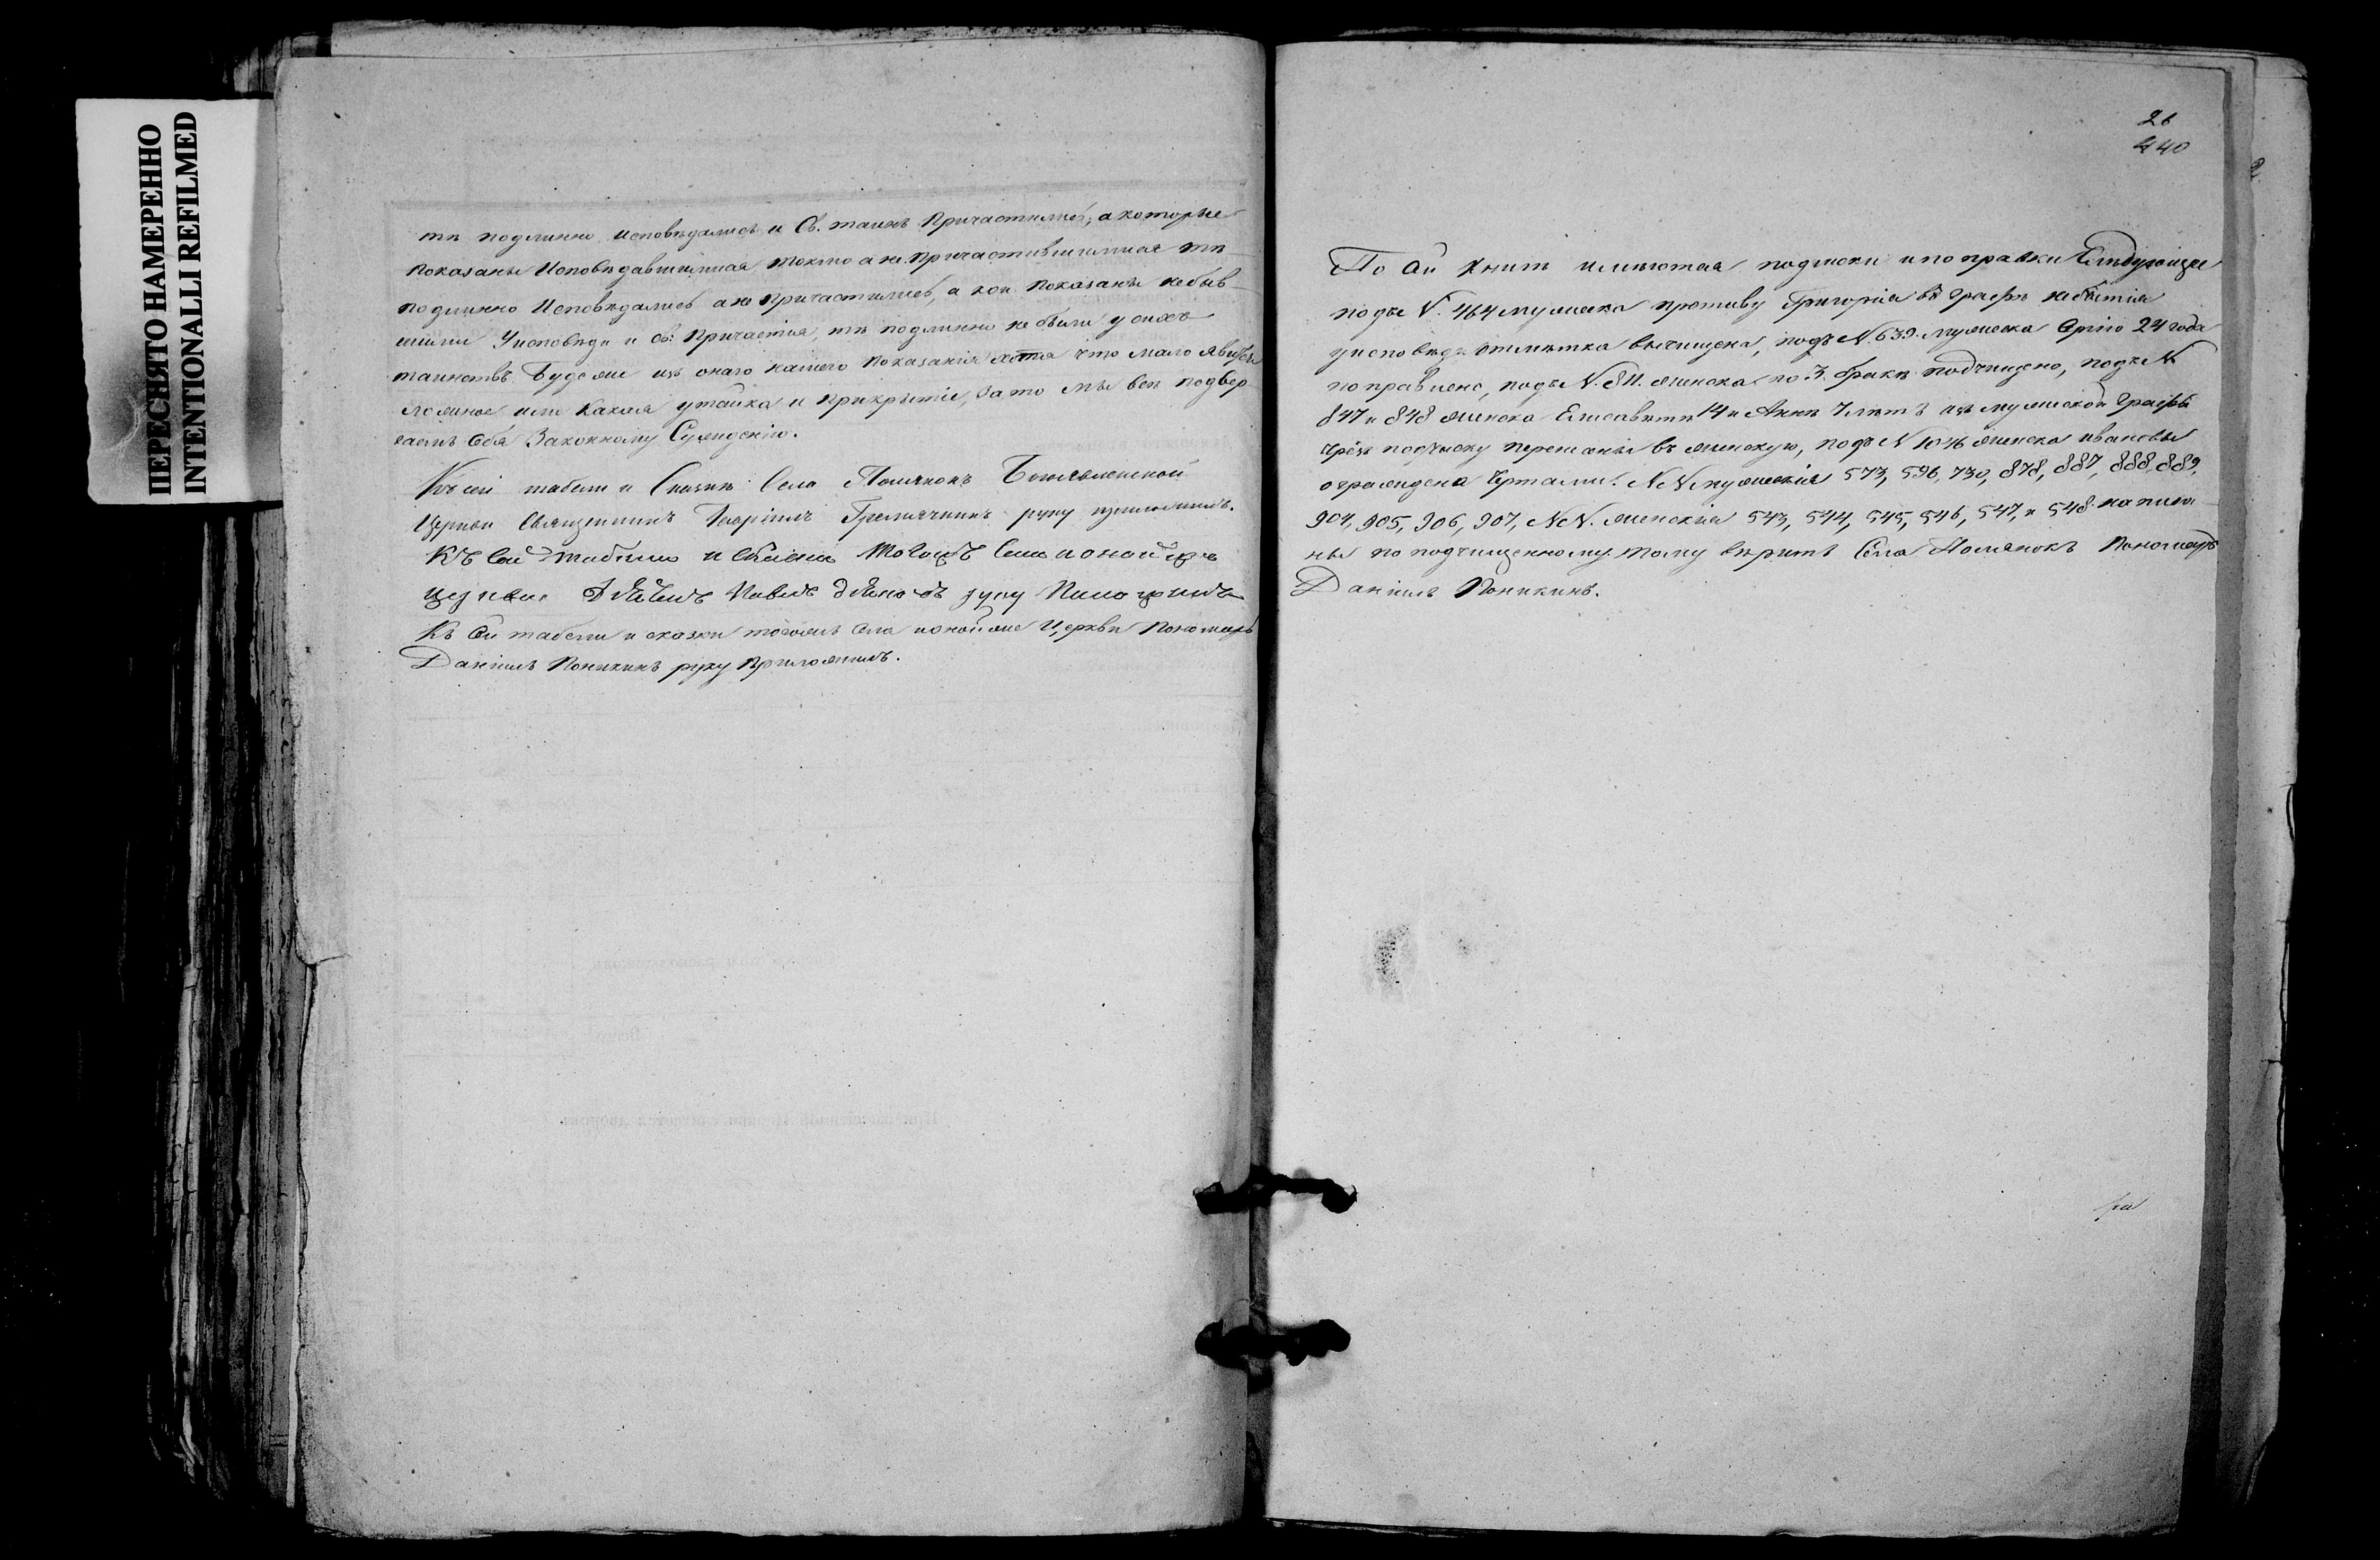 ПЕРЕСНЯТО НАМЕРЕННО
INTENTIONALLI REFILMED
тѣ подлинно исповѣдались и Св. таинъ причастились, а которые
показаны исповѣдавшимися токмо а не причастившимися тѣ
подлинно исповѣдались а не причастились, а кои показаны небыв-
шими у исповѣди и св. причастія, тѣ подлинно не были у сихъ
таинствъ. Буде же изъ онаго нашего показанія хотя что мало явится
ложное или какая утайка и прикрытіе, за то мы все подвер-
гаемъ себя законному сужденію.
Къ сей табели и сказкѣ села Полянокъ
церкви священникъ Гавріилъ руку приложилъ.
Къ сей табели и села и оной же
церкви Павелъ руку
Къ сей табели и сказки тогожъ села и оной же церкви пономарь
Даніилъ Поникинъ руку приложилъ.
26
440
По сей книгѣ имѣются подписки и поправки слѣдующіе
подъ N. 464 мужеска противу Григорія въ графѣ небытія
у исповѣди отмѣтка вычищена, подъ N. 639. мужеска 24 года
поправлено, подъ N. 811. женска по 3. бракѣ подчищено, подъ N
847 и 848 женска Елисаветѣ 14 и Аннѣ 7 лѣтъ изъ мужеской графы
чрезъ подчиску переписаны въ женскую, подъ N 1046 женска Ивановы
ограждена чертами. NN мужескія 573, 596, 730, 878, 887, 888, 889,
904, 905, 906, 907, NN. женскія 543, 544, 545, 546, 547, и 548 написа-
ны по подчищенному. тому вѣрить села Полянокъ пономарь
Даніилъ Поникинъ.